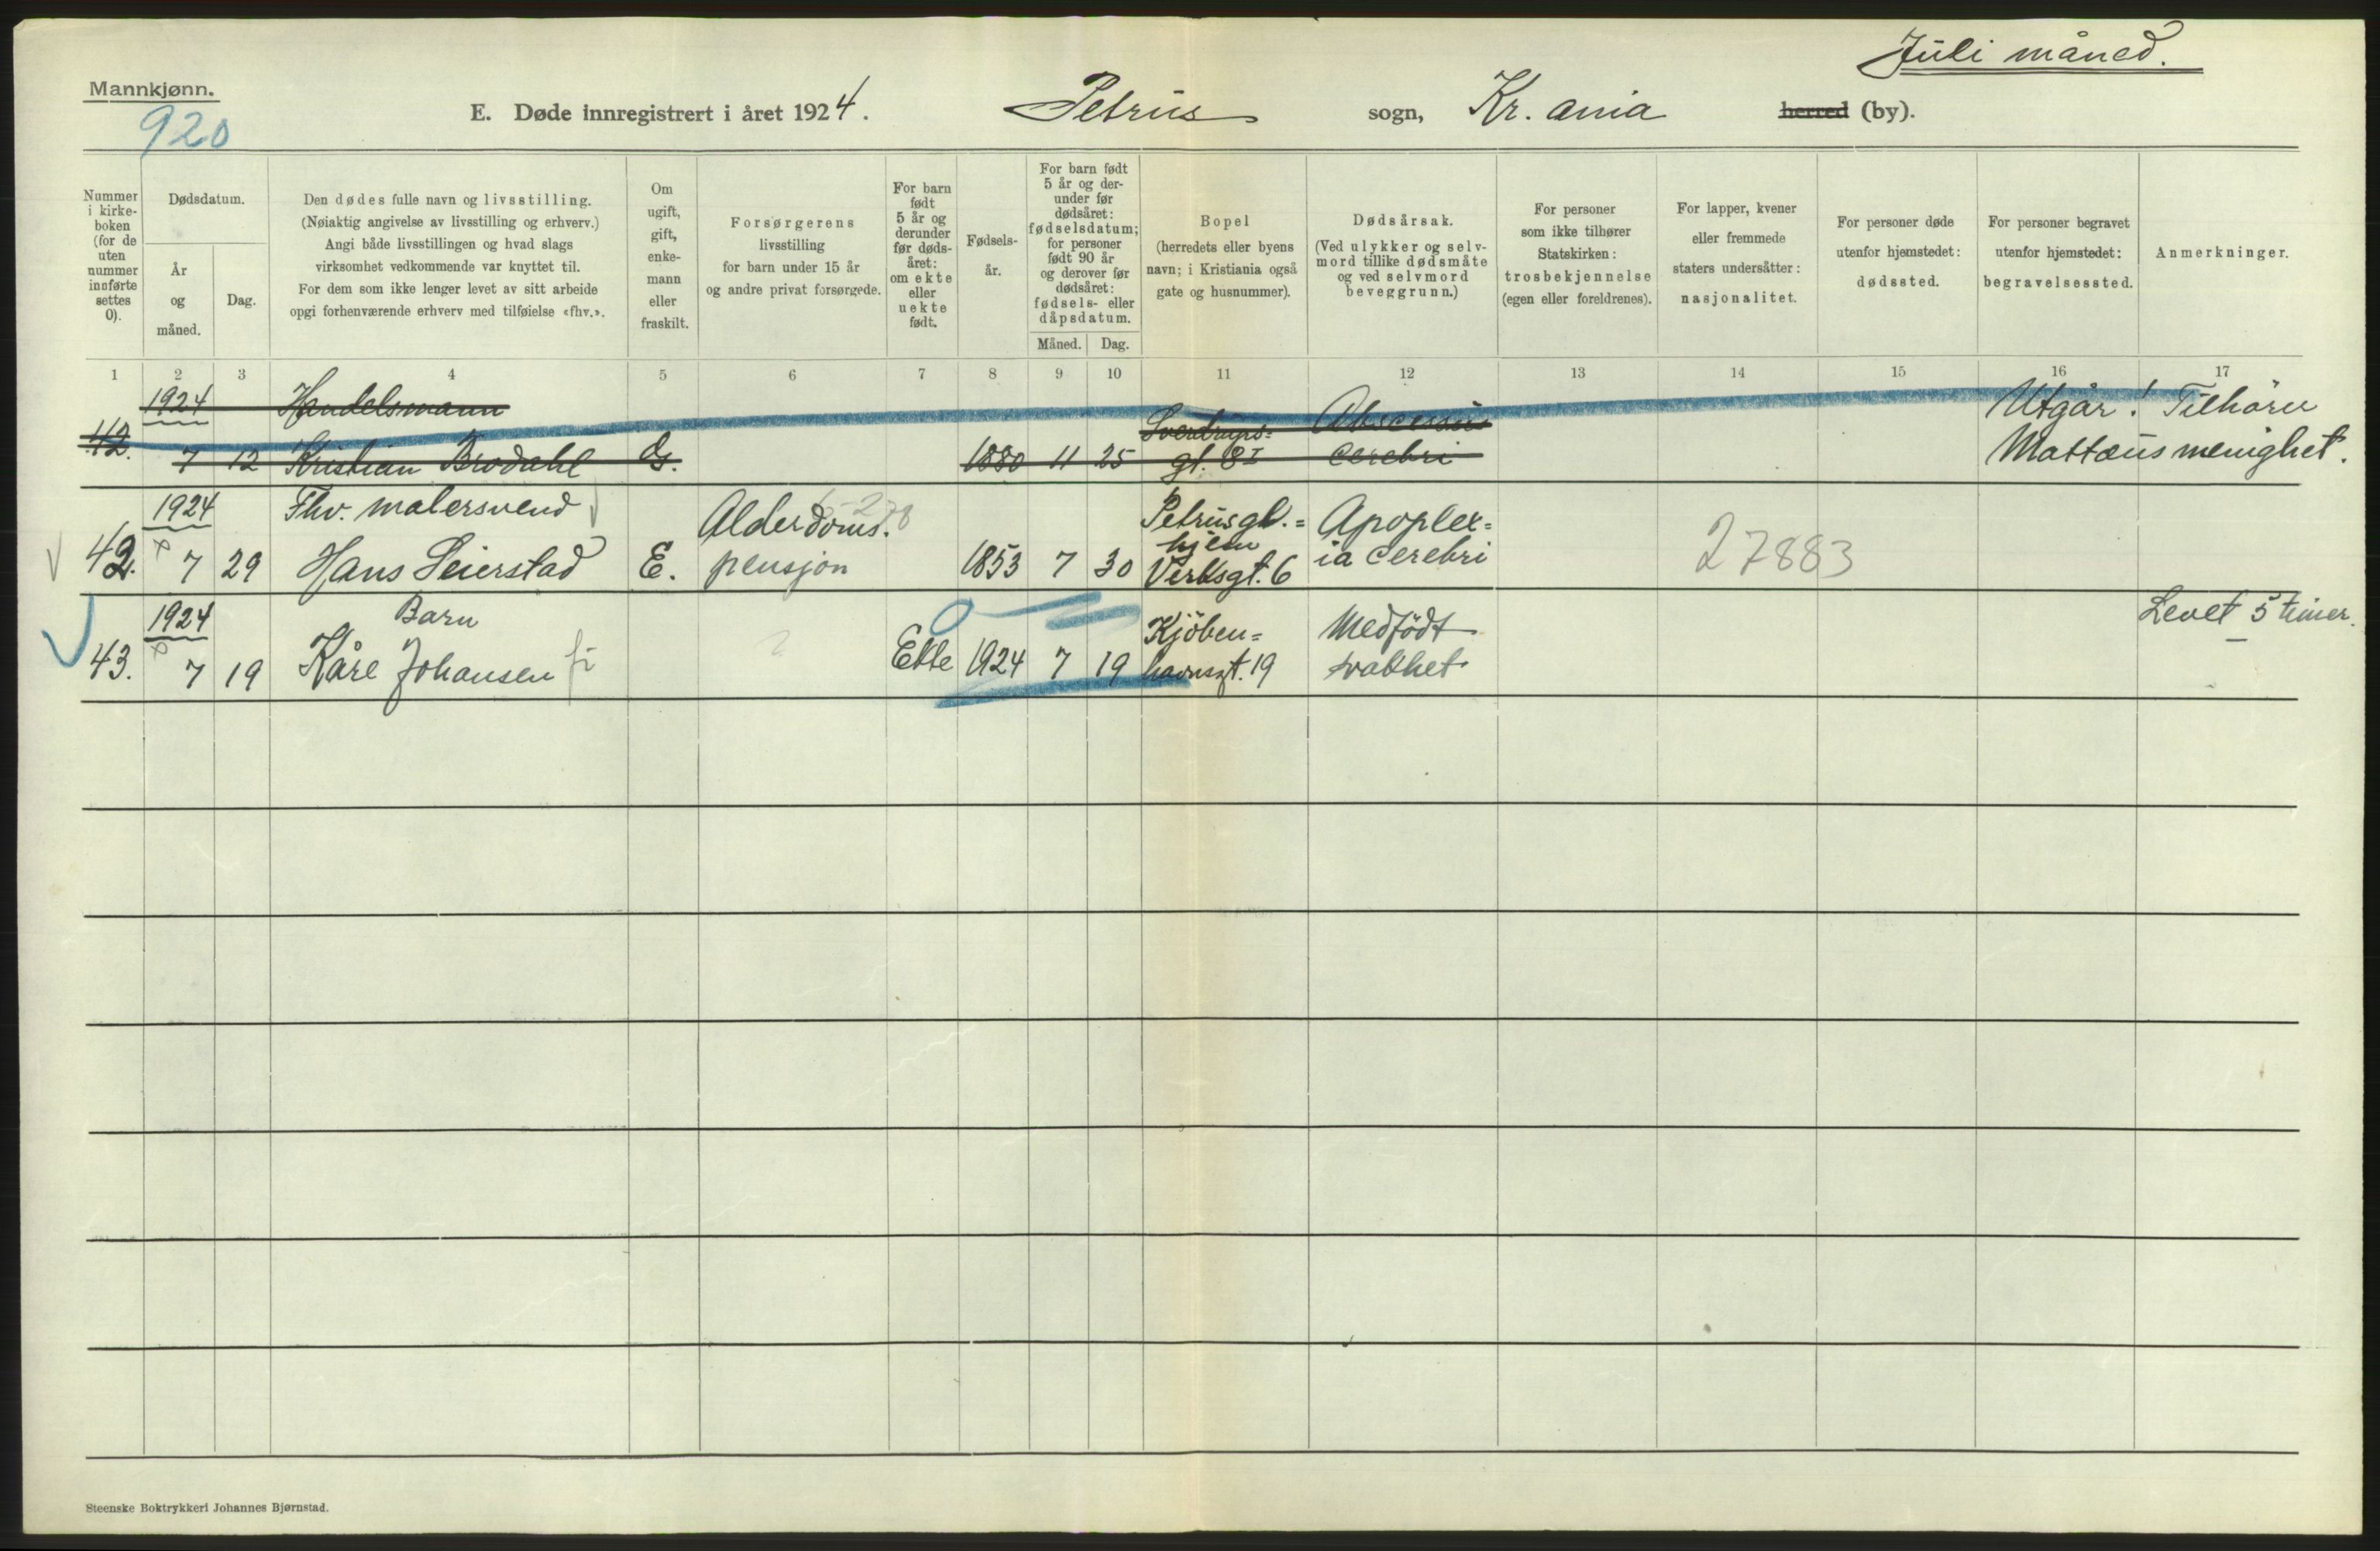 Juli måned.
Mannkjønn.
920
E. Døde innregistrert i året 1924. Petrus sogn, Kr.ania herred (by).
Nummer i kirke-boken (for de uten nummer innførte settes 0).
Dødsdatum.
År og måned.
Dag.
Den dødes fulle navn og livsstilling.
(Nøiaktig angivelse av livsstilling og erhverv.)
Angi både livsstillingen og hvad slags
virksomhet vedkommende var knyttet til.
For dem som ikke lenger levet av sitt arbeide
opgi forhenværende erhverv med tilføielse «fhv.».
Om ugift, gift, enke-mann eller fraskilt.
Forsørgerens
livsstilling
for barn under 15 år
og andre privat forsørgede.
For barn født 5 år og derunder før døds-året: om ekte eller uekte født.
Fødsels-år.
For barn født 5 år og der-under før dødsåret: fødselsdatum; for personer født 90 år og derover før dødsåret: fødsels- eller dåpsdatum.
Måned. Dag.
Bopel
(herredets eller byens
navn; i Kristiania også
gate og husnummer).
Dødsårsak.
(Ved ulykker og selv-
mord tillike dødsmåte
og ved selvmord
beveggrunn.)
For personer
som ikke tilhører
Statskirken:
trosbekjennelse
(egen eller foreldrenes).
For lapper, kvener
eller fremmede
staters undersåtter:
nasjonalitet.
For personer døde
utenfor hjemstedet:
dødssted.
For personer begravet
utenfor hjemstedet:
begravelsessted.
Anmerkninger.
1 2 3 4 5 6 7 8 9 10 11 12 13 14 15 16 17
1924 Handelsmann Sverdrups= Abscessus Utgår! Tilhører
42. 7 12 Kristian Brodahl G. 1880 11 25 gt. 8 I cerebri Mattæus menighet.
1924 Fhv. malersvend Alderdoms. Petrus gl.= Apoplex=
hjem
42. 7 29 Hans Seierstad E. pensjon 1853 7 30 Verksgt. 6 ia cerebri 27883
1924 Barn Kjöben= Medfödt Levet 5 timer.
43. 7 19 Kåre Johansen Ekte 1924 7 19 havnsgt. 19 svakhet
Steenske Boktrykkeri Johannes Bjørnstad.